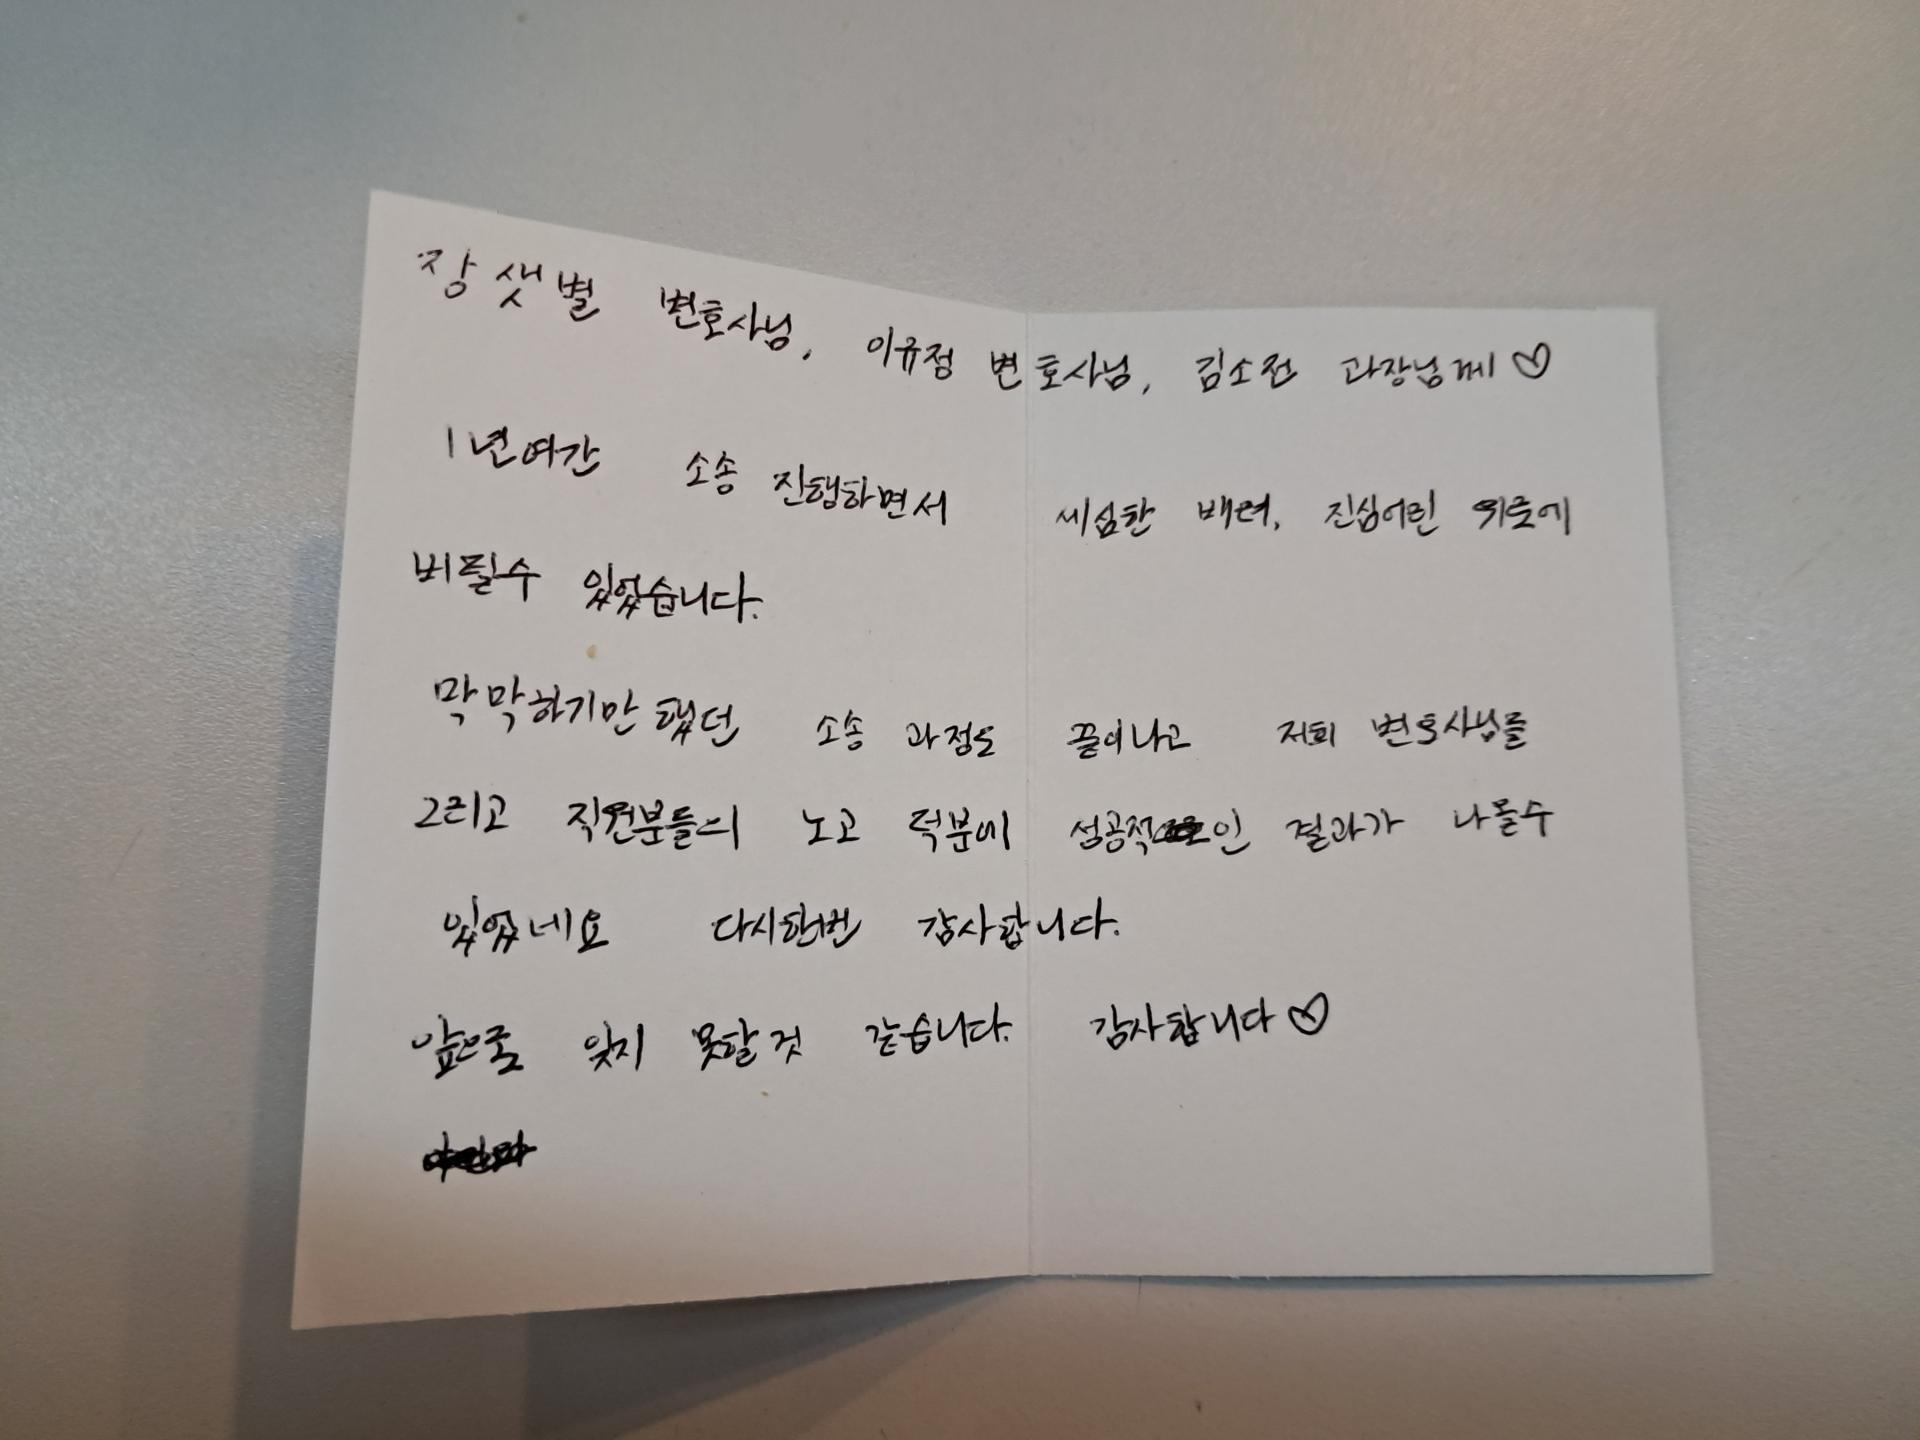 장샛별 변호사님, 이규정 변호사님, 김소전 과장님께♡
1년여간 소송 진행하면서 세심한 배려, 진심어린 위로에
버틸수 있었습니다.
막막하기만 했던 소송 과정도 끝이나고 저희 변호사님들
그리고 직원분들의 노고 덕분에 성공적인 결과가 나올수
있었네요 다시한번 감사합니다.
앞으로 잊지 못할것 같습니다. 감사합니다♡